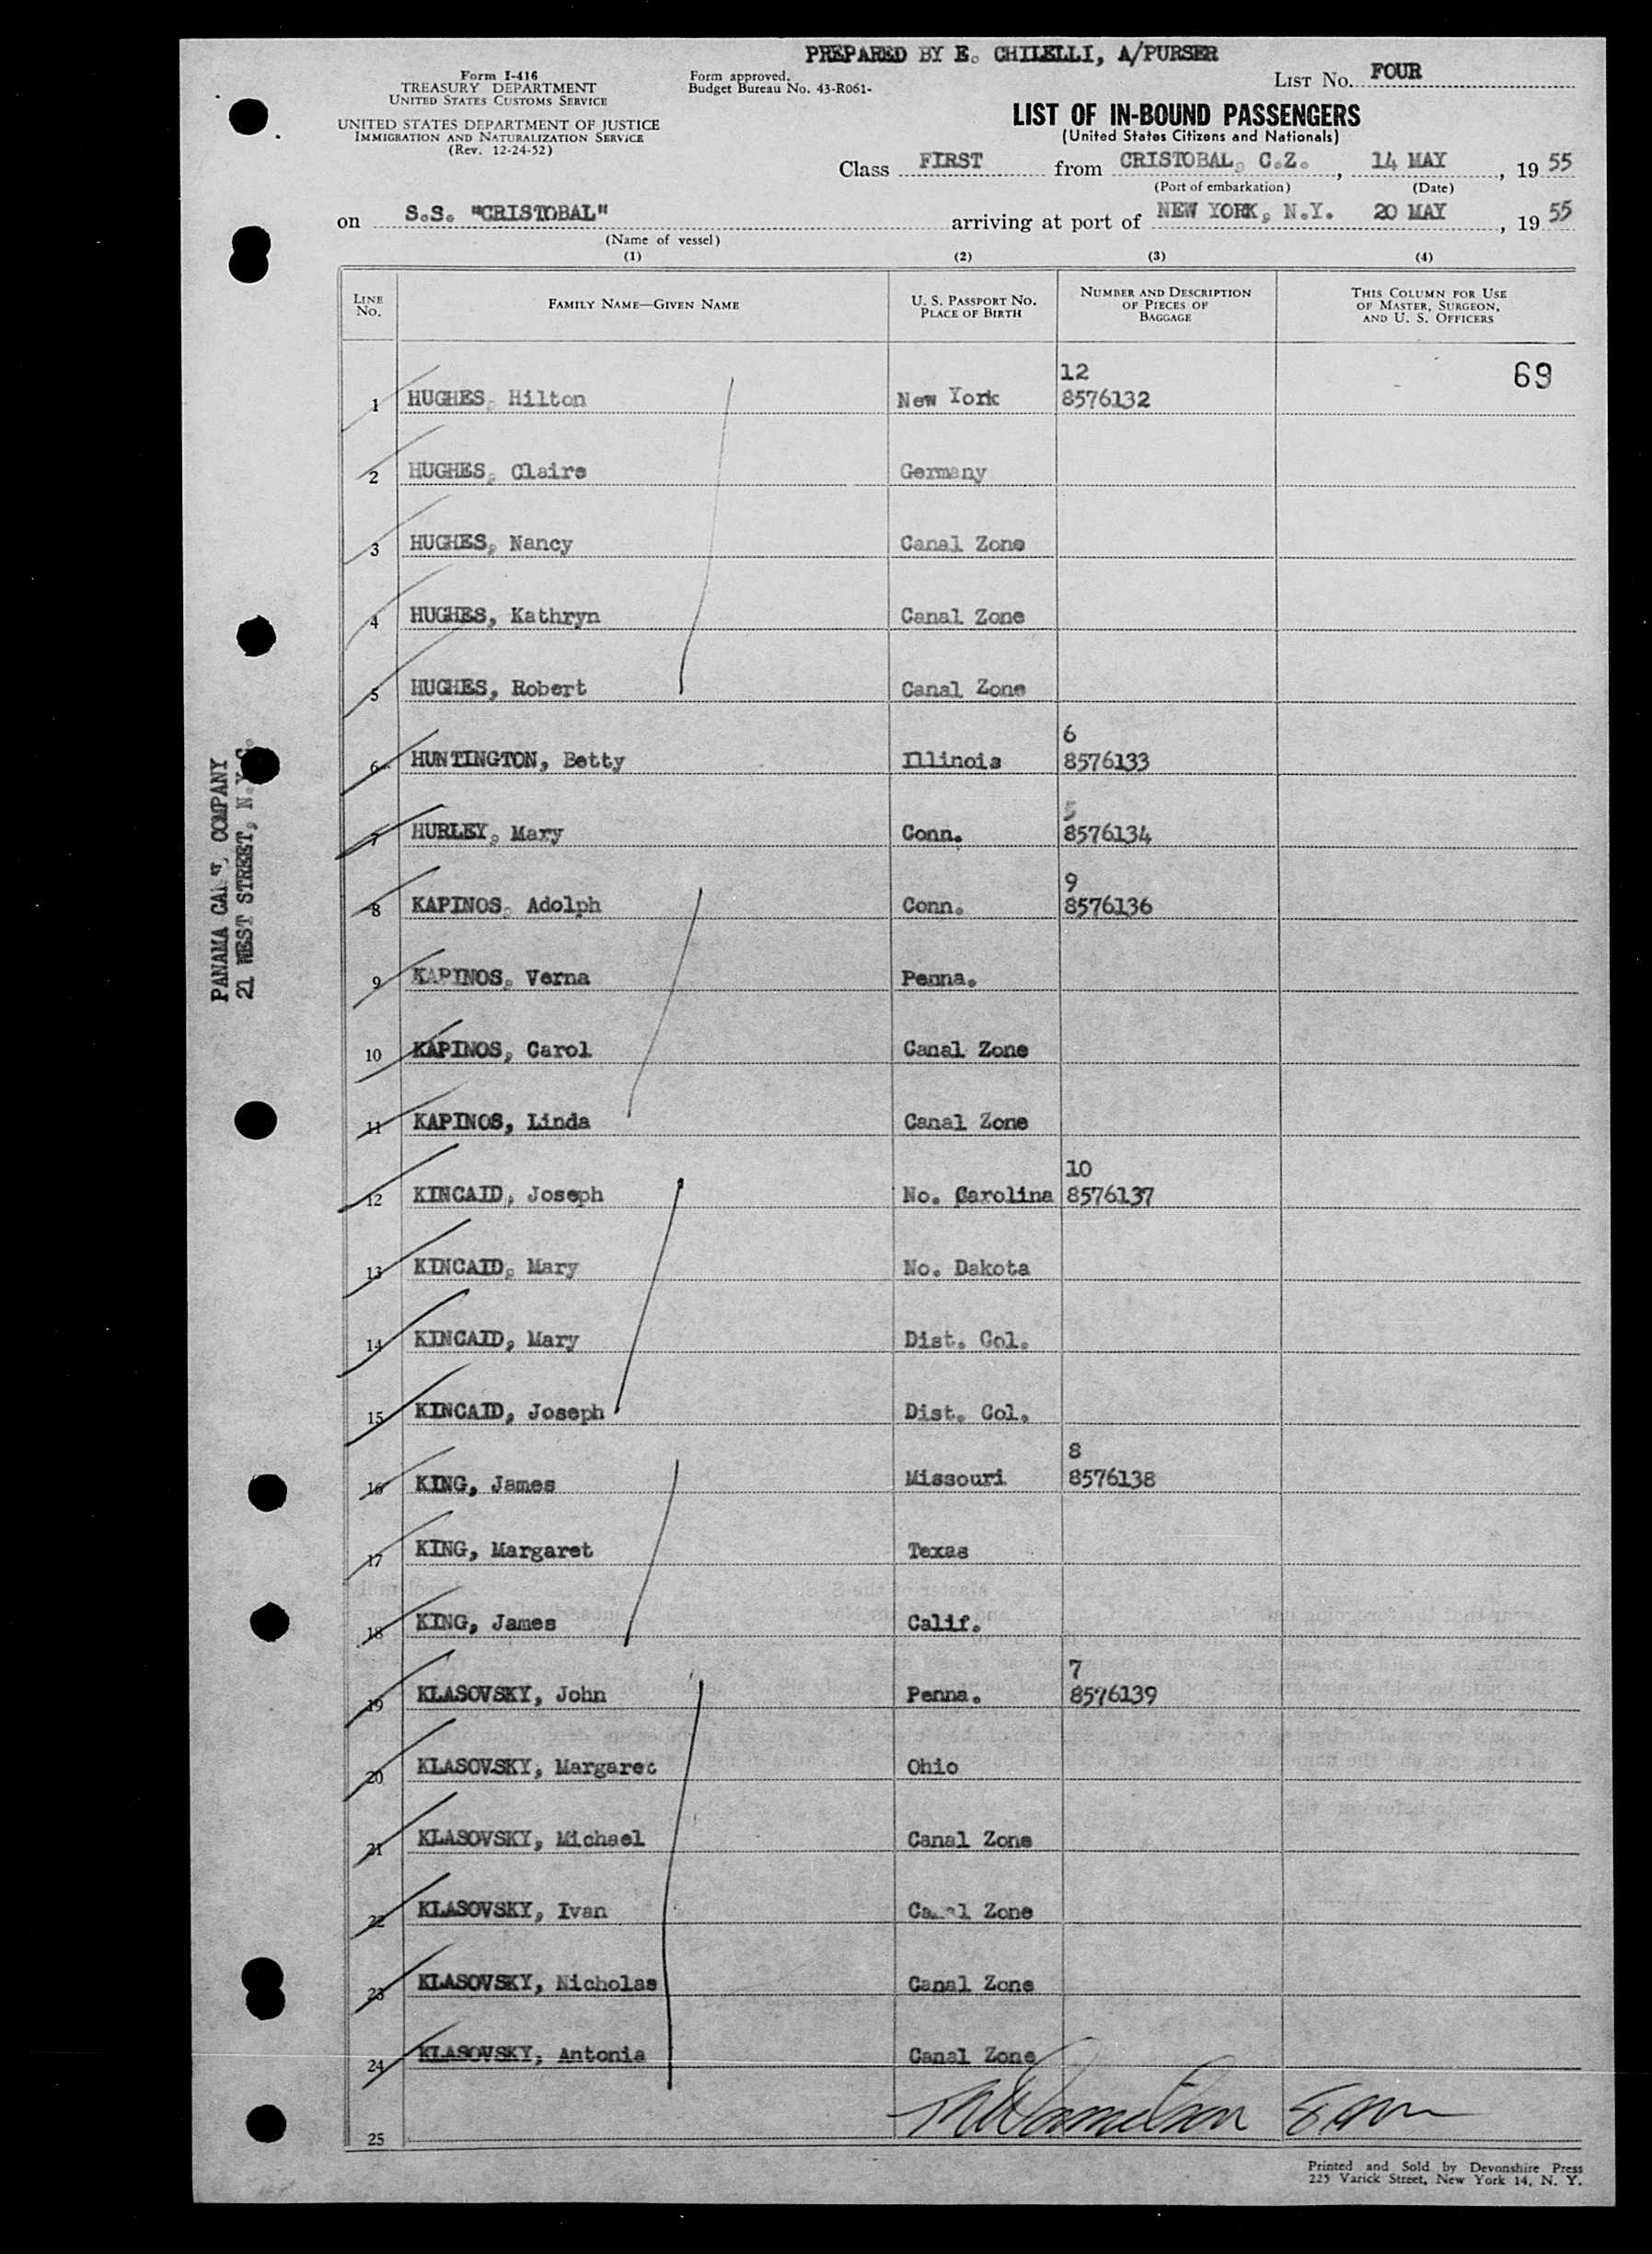 PREPARED BY E. CHILELLI, A/PURSER
Form I-416
TREASURY DEPARTMENT
UNITED STATES CUSTOMS SERVICE
UNITED STATES DEPARTMENT OF JUSTICE
IMMIGRATION AND NATURALIZATION SERVICE
(Rev. 12-24-52)
Form approved.
Budget Bureau No. 43-R061-
LIST No. FOUR
LIST OF IN-BOUND PASSENGERS
(United States Citizens and Nationals)
Class FIRST from CRISTOBAL, C.Z., 14 MAY, 19 55
(Port of embarkation) (Date)
on S.S. "CRISTOBAL" arriving at port of NEW YORK, N.Y. 20 MAY, 19 55
(Name of vessel)
(1) (2) (3) (4)
LINE No. FAMILY NAME—GIVEN NAME U. S. PASSPORT No. PLACE OF BIRTH NUMBER AND DESCRIPTION OF PIECES OF BAGGAGE THIS COLUMN FOR USE OF MASTER, SURGEON, AND U. S. OFFICERS
12 69
1 HUGHES, Hilton New York 8576132
2 HUGHES, Claire Germany
3 HUGHES, Nancy Canal Zone
4 HUGHES, Kathryn Canal Zone
5 HUGHES, Robert Canal Zone
6
6 HUNTINGTON, Betty Illinois 8576133
5
7 HURLEY, Mary Conn. 8576134
9
8 KAPINOS, Adolph Conn. 8576136
9 KAPINOS, Verna Penna.
10 KAPINOS, Carol Canal Zone
11 KAPINOS, Linda Canal Zone
10
12 KINCAID, Joseph No. Carolina 8576137
13 KINCAID, Mary No. Dakota
14 KINCAID, Mary Dist. Col.
15 KINCAID, Joseph Dist. Col.
8
16 KING, James Missouri 8576138
17 KING, Margaret Texas
18 KING, James Calif.
7
19 KLASOVSKY, John Penna. 8576139
20 KLASOVSKY, Margaret Ohio
21 KLASOVSKY, Michael Canal Zone
22 KLASOVSKY, Ivan Canal Zone
23 KLASOVSKY, Nicholas Canal Zone
24 KLASOVSKY, Antonia Canal Zone
25
PANAMA CANAL COMPANY
21 WEST STREET, N.Y.C.
Printed and Sold by Devonshire Press
225 Varick Street, New York 14, N. Y.